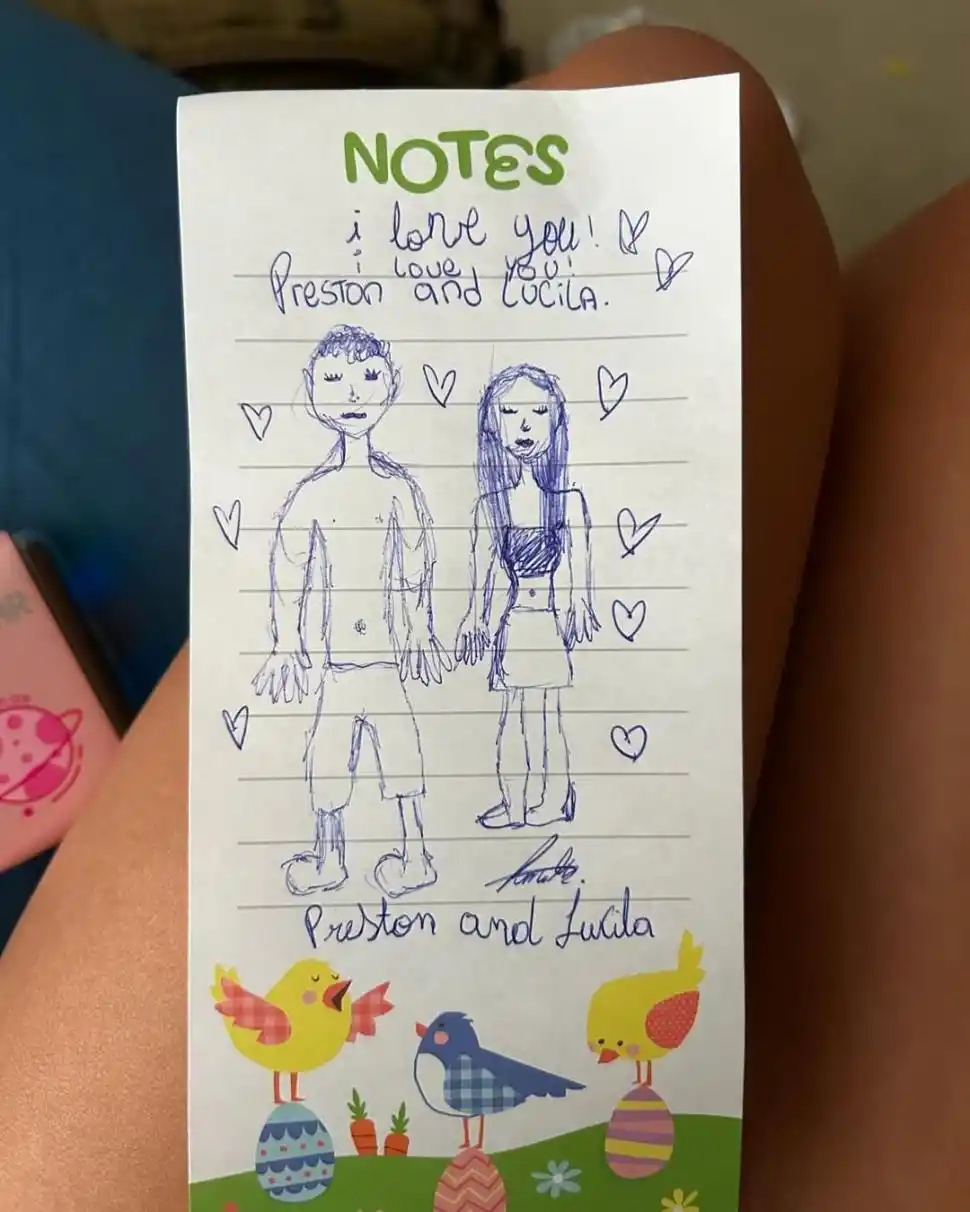 NOTES
i love you!
i love you!
Preston and Lucila.
Preston and Lucila